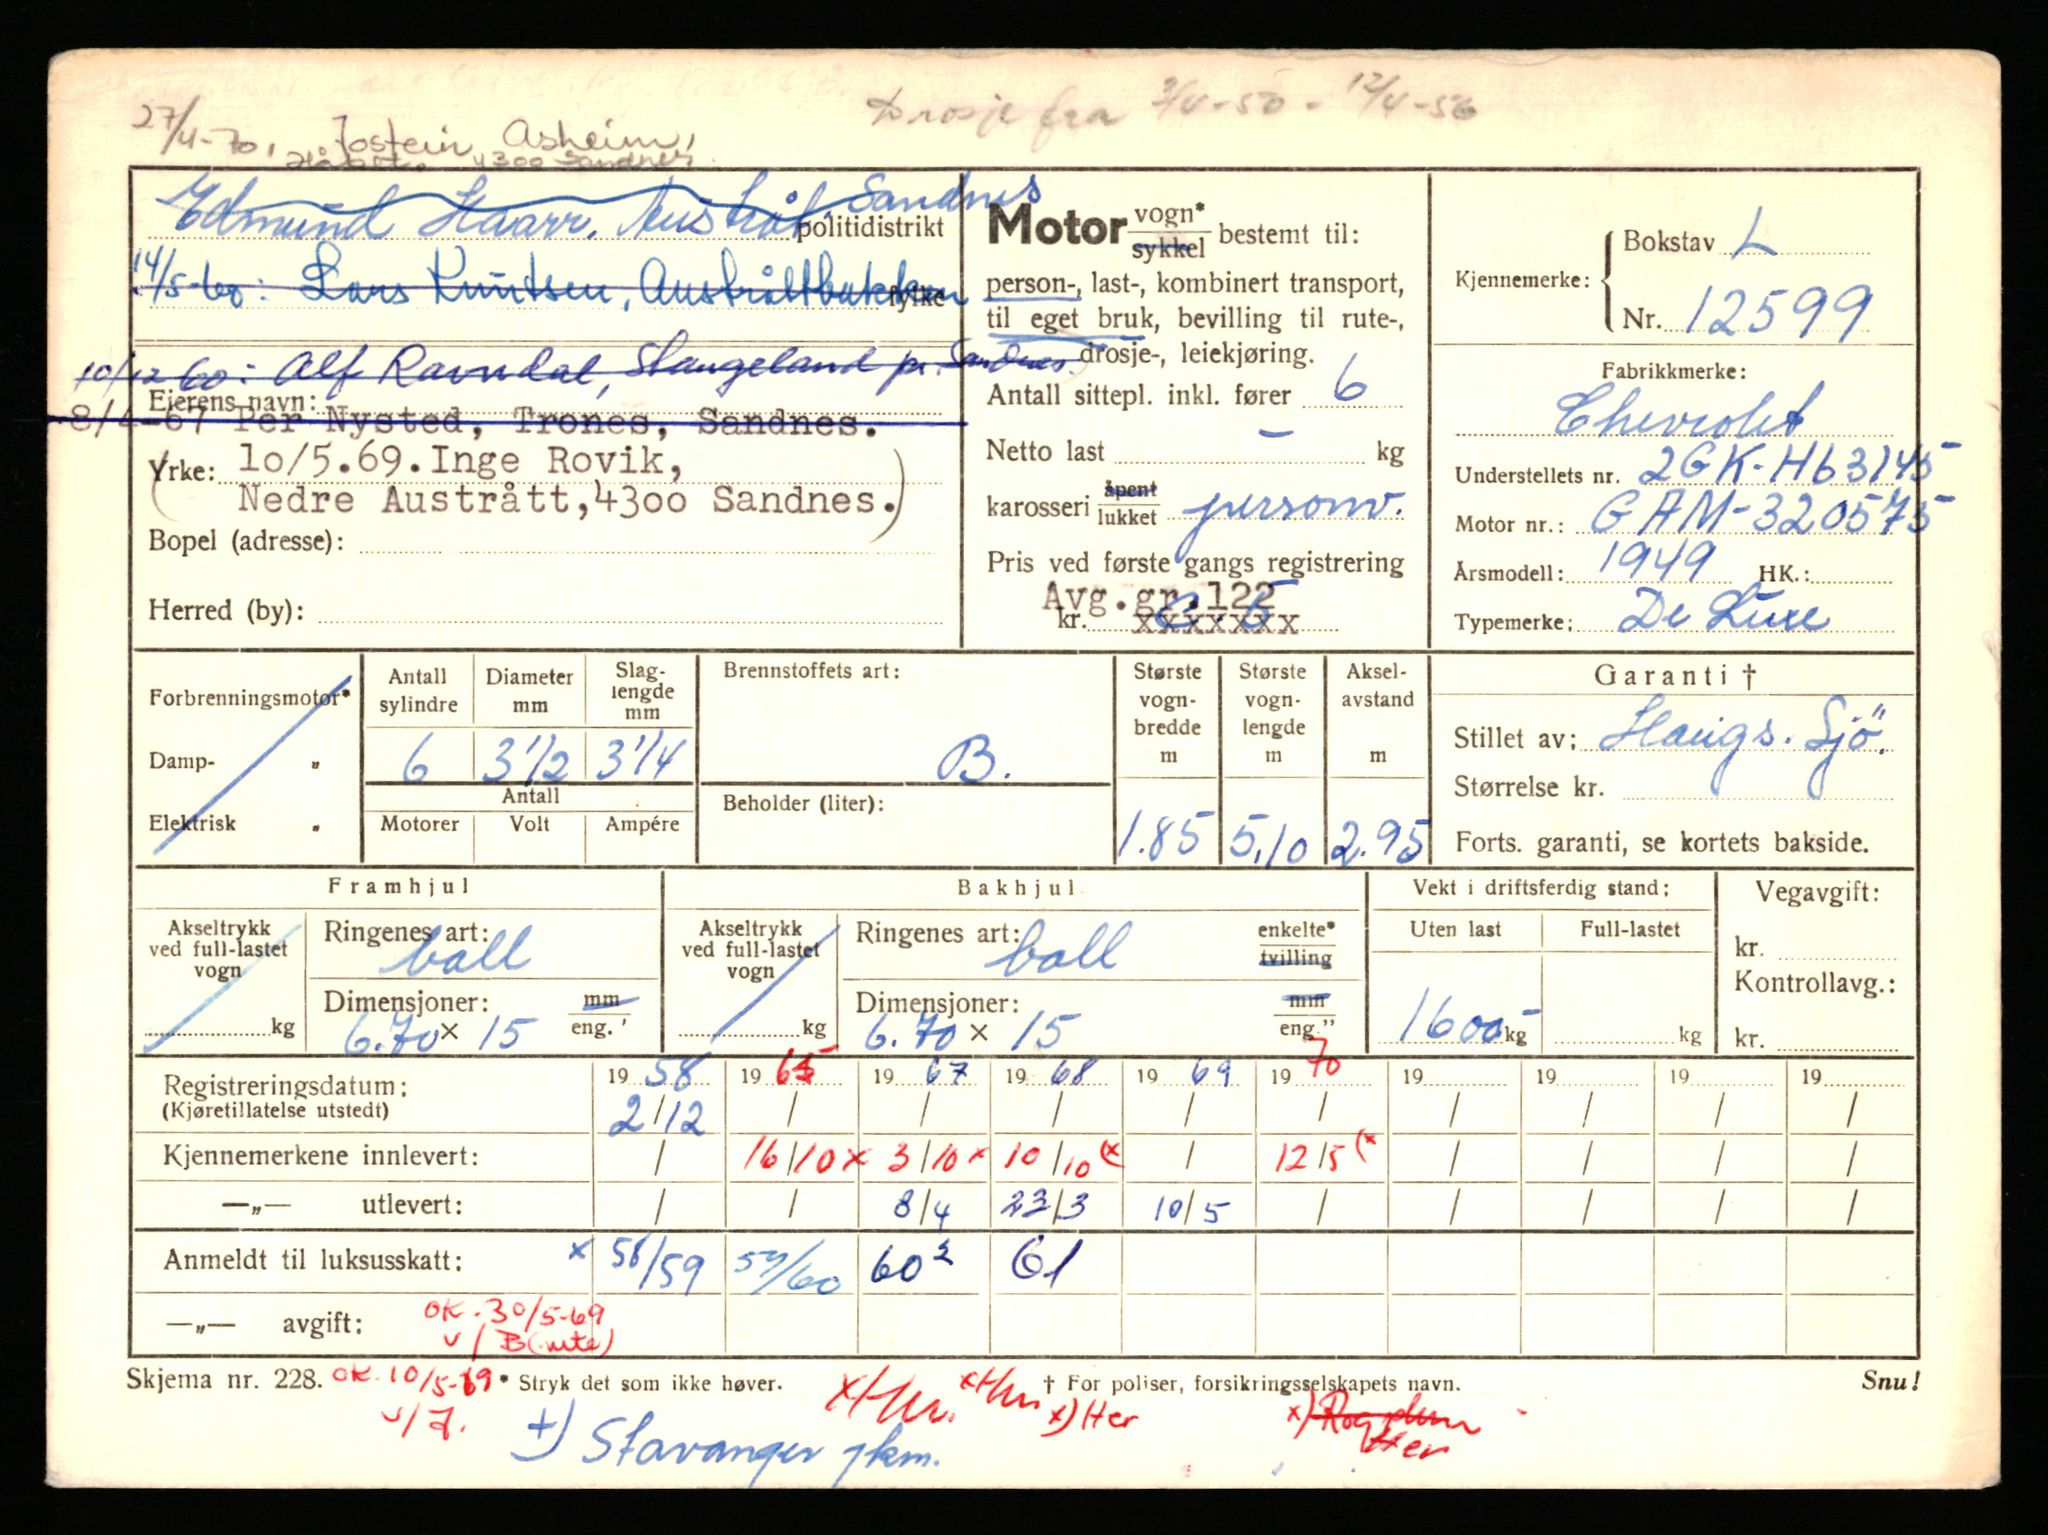 27/4-70, Jostein Asheim,
4300 Sandnes.
Drosje fra 2/4-50 - 12/4-56
Edmund Haarr, Austråt Sandnes
politidistrikt
14/5-60: Lars Knutsen, Austråttbakken
fylke
10/12 60: Alf Ravndal, Stangeland pr. Sandnes.
Eierens navn:
8/4-67 Per Nysted, Trones, Sandnes.
Yrke: (10/5.69. Inge Rovik,
Nedre Austrått, 4300 Sandnes.)
Bopel (adresse):
Herred (by):
Motor vogn* sykkel bestemt til:
person-, last-, kombinert transport,
til eget bruk, bevilling til rute-,
drosje-, leiekjøring.
Antall sittepl. inkl. fører 6
Netto last - kg
karosseri åpent lukket personv.
Pris ved første gangs registrering
Avg.gr.122
kr. xxxxxxx
Kjennemerke: Bokstav L
Nr. 12599
Fabrikkmerke:
Chevrolet
Understellets nr. 2GK-H63145
Motor nr.: GAM-320575
Årsmodell: 1949 HK.:
Typemerke: De Luxe
Forbrenningsmotor*
Damp- "
Elektrisk "
Antall sylindre 6
Diameter mm 3 1/2
Slaglengde mm 3 1/4
Antall
Motorer Volt Ampére
Brennstoffets art:
B.
Beholder (liter):
Største vognbredde m 1.85
Største vognlengde m 5,10
Akselavstand m 2.95
Garanti †
Stillet av: Haugs. Sjö.
Størrelse kr.
Forts. garanti, se kortets bakside.
Framhjul
Akseltrykk ved full-lastet vogn kg
Ringenes art: ball
Dimensjoner: mm
6.70 x 15 eng."
Bakhjul
Akseltrykk ved full-lastet vogn kg
Ringenes art: ball enkelte* tvilling
Dimensjoner: mm
6.70 x 15 eng."
Vekt i driftsferdig stand:
Uten last Full-lastet
1600 kg kg
Vegavgift:
kr.
Kontrollavg.:
kr.
Registreringsdatum: 19 58 19 65 19 67 19 68 19 69 19 70 19 19 19 19
(Kjøretillatelse utstedt) 2/12 / / / / / / / / /
Kjennemerkene innlevert: / 16/10 x 3/10 x 10/10 (x / 12/5 (x / / / /
—„— utlevert: / / 8/4 23/3 10/5 / / / / /
Anmeldt til luksusskatt: x 58/59 59/60 60² 61
—„— avgift: OK. 30/5-69
Skjema nr. 228. OK. 10/5-69 * Stryk det som ikke høver. † For poliser, forsikringsselskapets navn. Snu!
x) Her x) Her
+) Stavanger